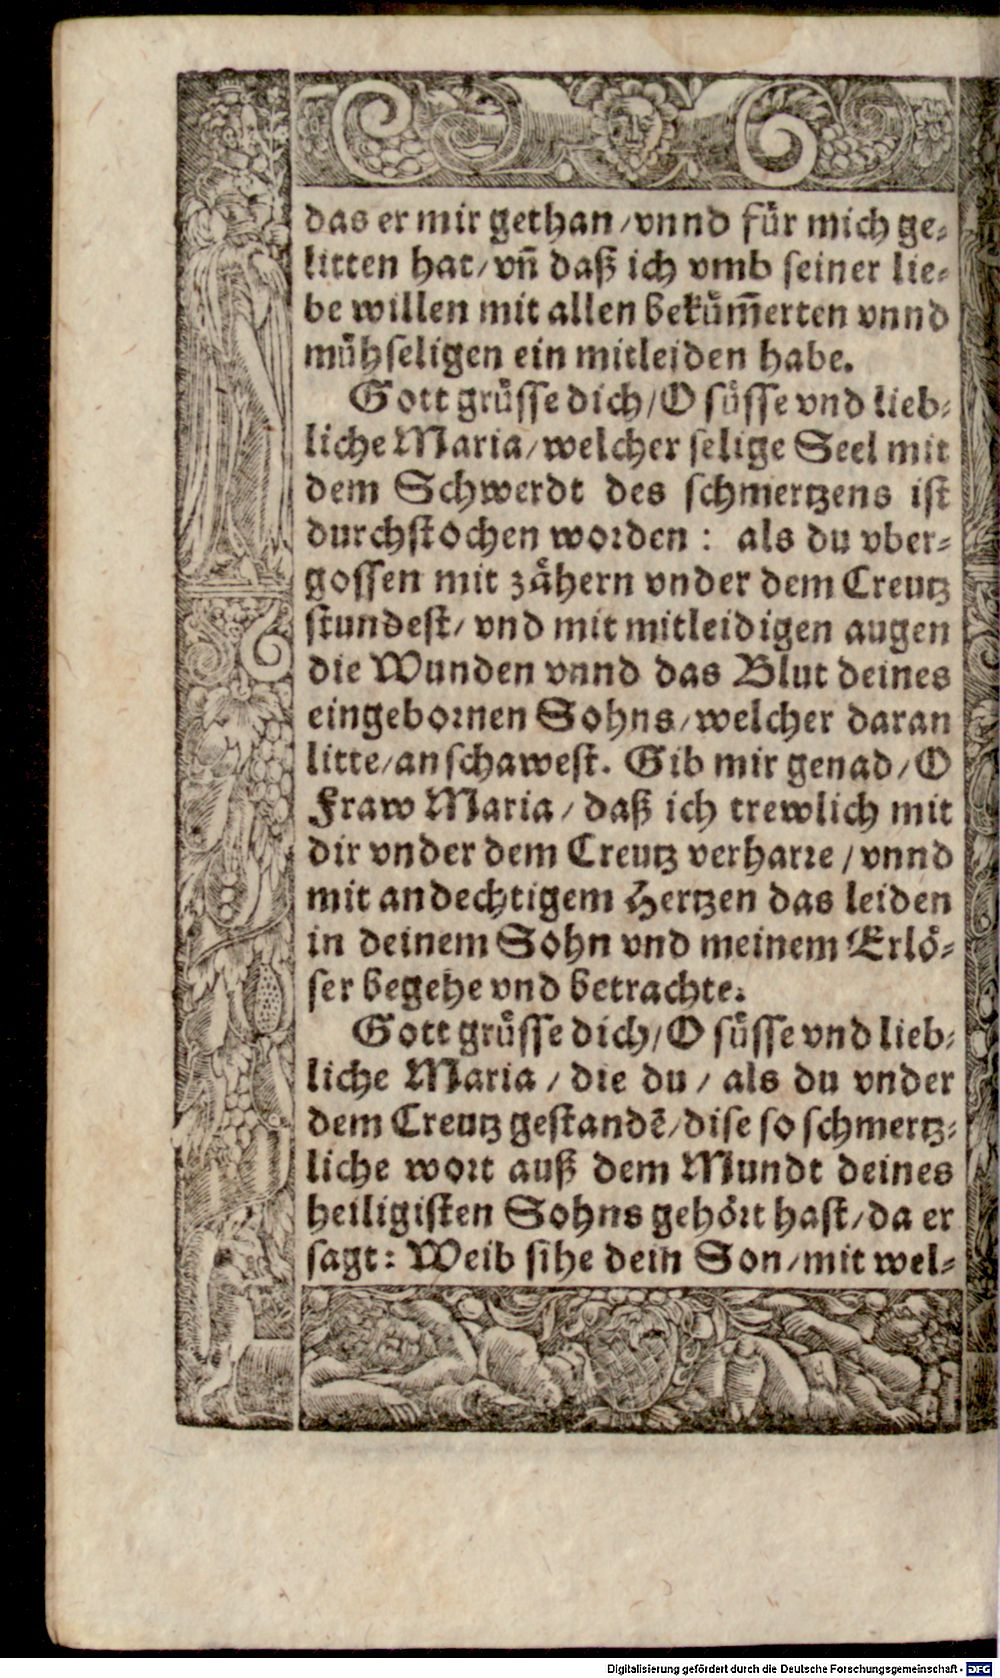 das er mir gethan/vnnd fuͤr mich ge-
litten hat/vn̄ daß ich vmb seiner lie-
be willen mit allen bekuͤm̄erten vnnd
muͤhseligen ein mitleiden habe.
Gott gruͤsse dich/O suͤsse vnd lieb-
liche Maria/welcher selige Seel mit
dem Schwerdt des schmertzens ist
durchstochen worden: als du vber-
gossen mit zaͤhern vnder dem Creutz
stundest/vnd mit mitleidigen augen
die Wunden vnnd das Blut deines
eingebornen Sohns/welcher daran
litte/anschawest. Gib mir genad/O
Fraw Maria/daß ich trewlich mit
dir vnder dem Creutz verharre/vnnd
mit andechtigem Hertzen das leiden
in deinem Sohn vnd meinem Erloͤ-
ser begehe vnd betrachte.
Gott gruͤsse dich/O suͤsse vnd lieb-
liche Maria/die du/als du vnder
dem Creutz gestandē/dise so schmertz-
liche wort auß dem Mundt deines
heiligisten Sohns gehoͤrt hast/da er
sagt: Weib sihe dein Son/mit wel-
Digitalisierung gefördert durch die Deutsche Forschungsgemeinschaft - DFG